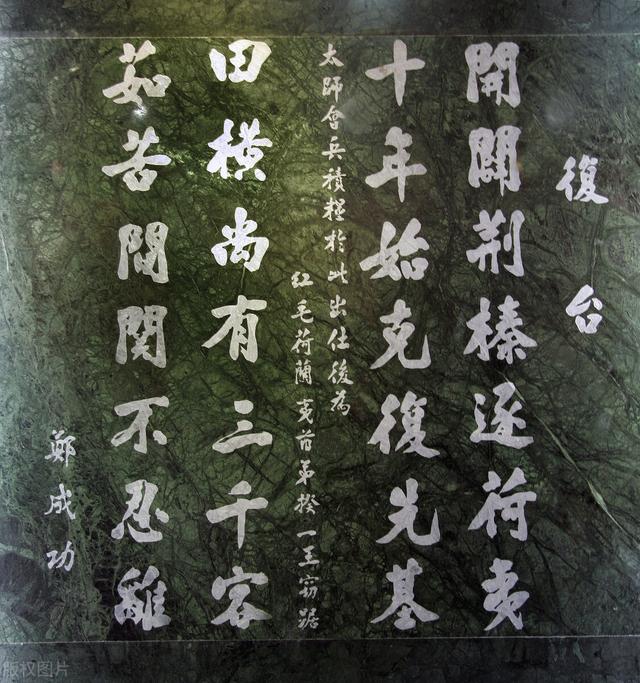 復台
開闢荊榛逐荷夷
十年始克復先基
太師會兵積糧於此出仕後為
紅毛荷蘭夷酋弟揆一王竊踞
田橫尚有三千客
茹苦間関不忍離
鄭成功
版权图片